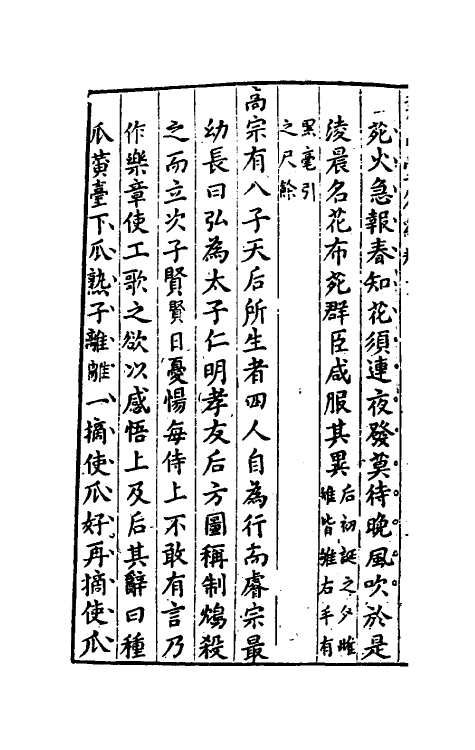 苑火急報春知花須連夜發莫待晚風吹於是
淩晨名花布苑群臣咸服其異后初誕之夕雌
雉皆雊右手有
黑毫引
之尺餘
高宗有八子天后所生者四人自為行而睿宗最
幼長曰弘為太子仁明孝友后方圖稱制鴆殺
之而立次子賢賢日憂惕每侍上不敢有言乃
作樂章使工歌之欲以感悟上及后其辭曰種
瓜黃臺下瓜熟子離離一摘使瓜好再摘使瓜